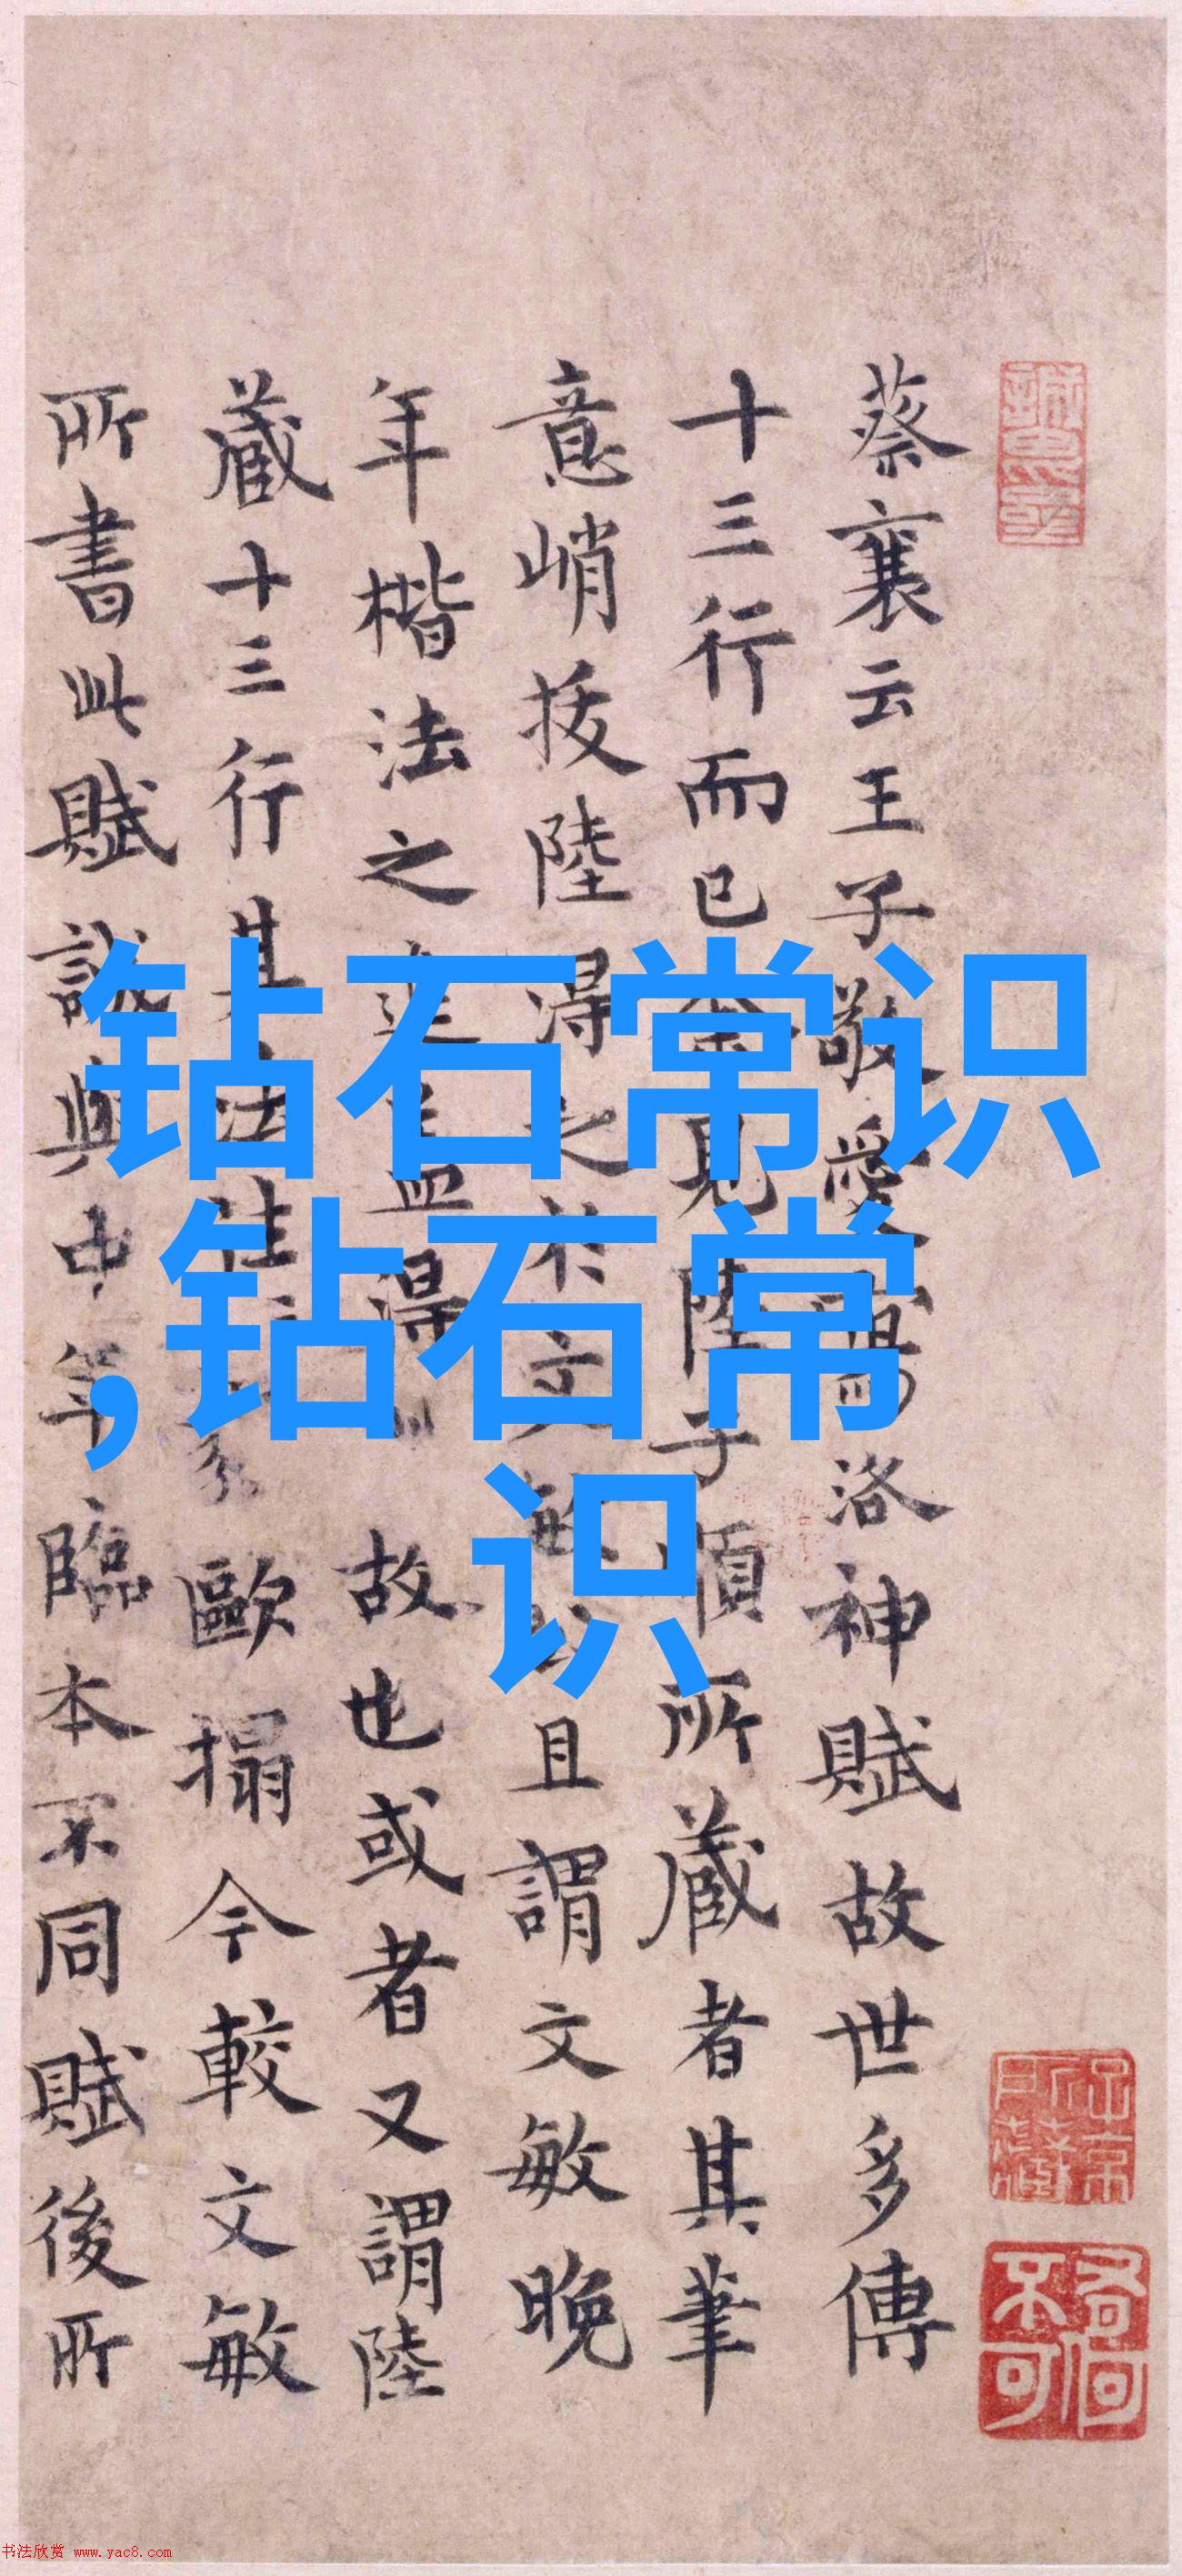 钻石常识
,钻石常
识
蔡襄云王子敬愛寫洛神賦故世多傳
十三行而已余見陸子順所藏者其筆
意峭拔陸得之於文敏且謂文敏晚
年楷法之進盖得故也或者又謂陸
藏十三行其法往歐搨今較文敏
所書此賦誠與中年臨本不同賦後所
书法欣赏 www.yac8.com